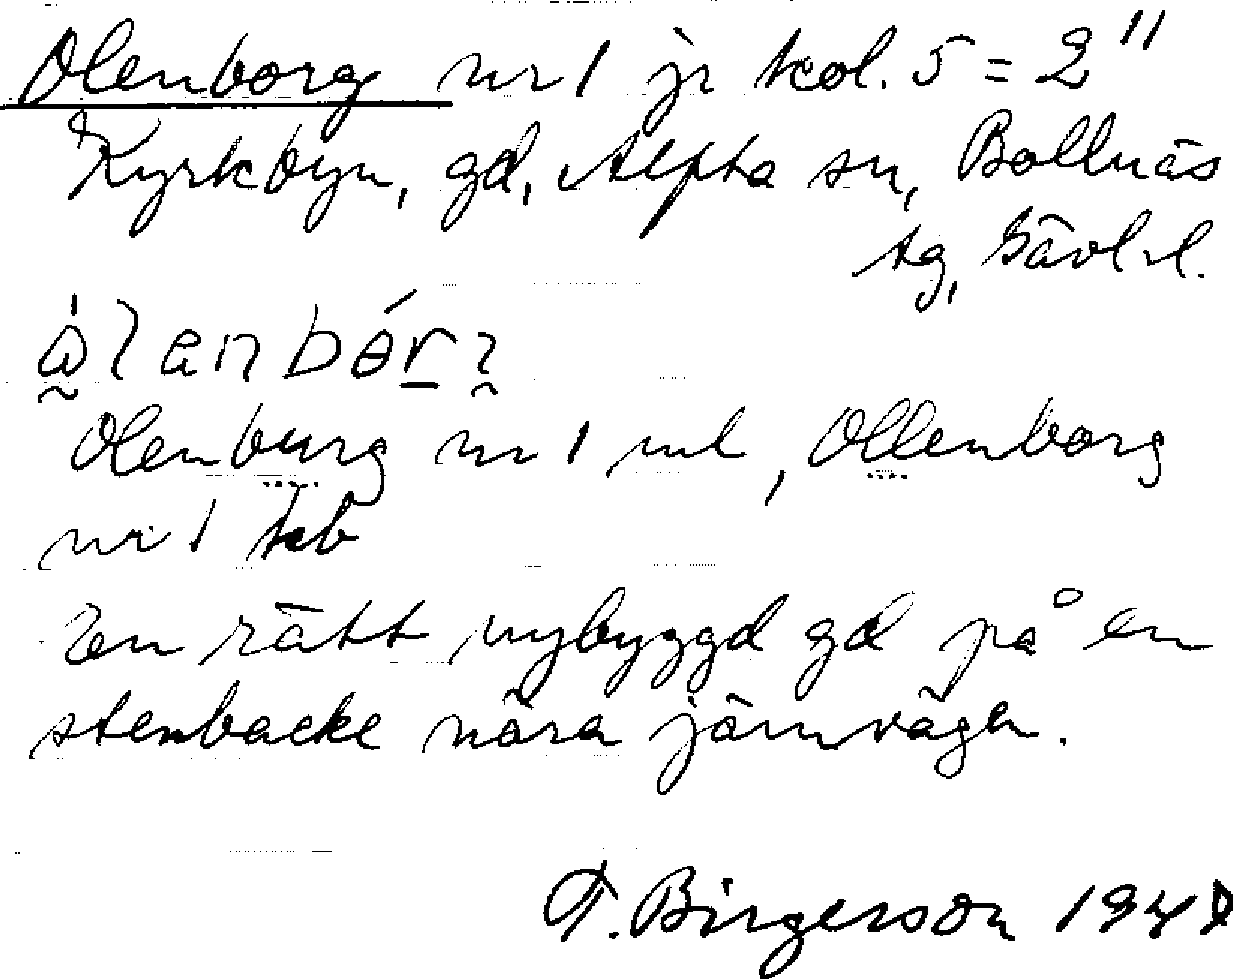 Olenborg nr 1 jr kol. 5 = 2"
Kyrkbyn, gd, Alfta sn, Bollnäs
tg, Gävl. l.
Olenburg nr 1 ml, Ollenborg
nr 1 tkb
En rätt nybyggd gd på en
stenbacke nära järnvägen.
F. Birgerson